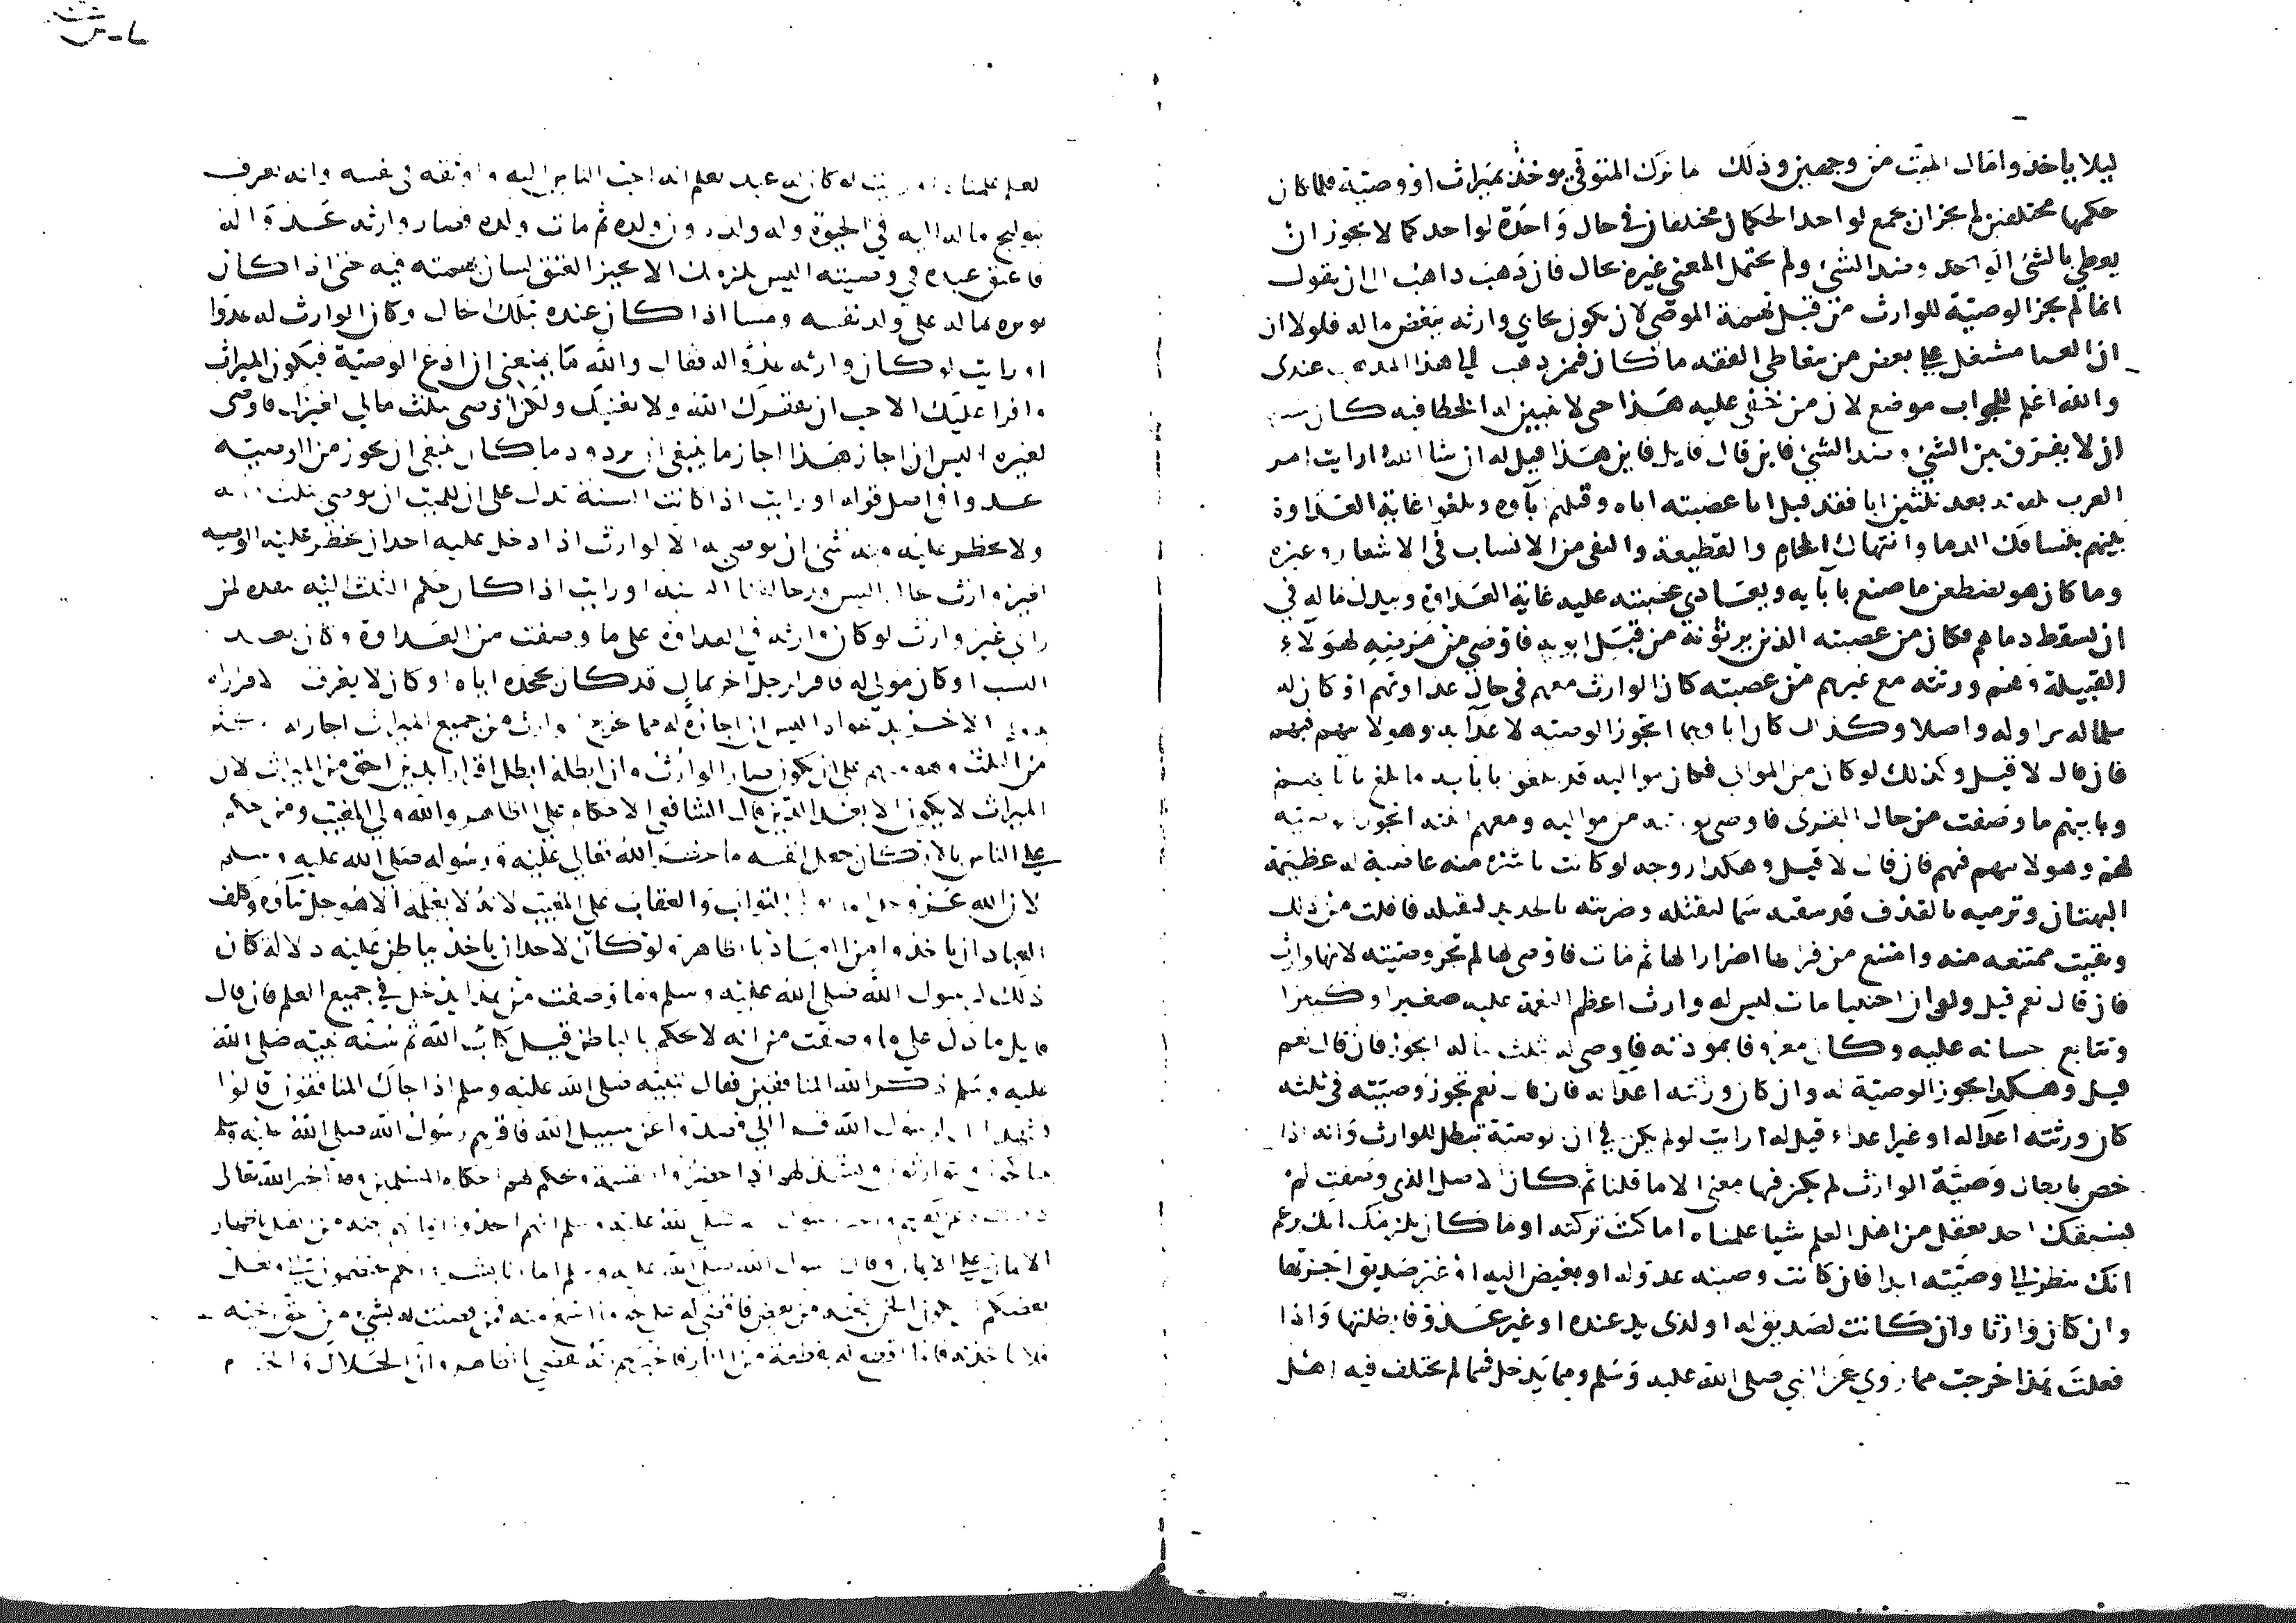 ليلا ياخذوا مال الميت من وجهين وذلك ما ترك المتوفى يوخذ بميراث او وصية فلما كان
حكمها مختلفين لم يجز ان يجمع لواحد الحكمان المختلفان في حال واحدة لواحد كما لا يجوز ان
يعطي بالشئ الواحد وضد الشئ ولم يحتمل المعنى غيره بحال فان ذهب ذاهب الى ان يقول
انما لم يجز الوصية للوارث من قبل تهمة الموصي لان يكون يحابي وارثه ببعض ماله فلولا ان
ان العنا مشغل على بعض من يتعاطى الفقه ما كان فيمن ذهب الى هذا المذهب عندى
والله اعلم للجواب موضع لان من خفي عليه هذا حتى لا يتبين له الخطا فيه كان
ان لا يفرق بين الشئ وضد الشئ فان قال قايل فاين هذا قيل له ان شا الله ارايت امر
العرب عصبته بعد ثلثين ابا فقد قتل ابا عصبته اباه وقتلهم اباوه وبلغوا غاية العداوة
بينهم بتسافك الدما وانتهاك المحارم والقطيعة والنفي من الانساب في الاشعار وغيره
وما كان هو يصطعن ما صنع بابايه ويعادي عصبته عليه غاية العداوة ويبذل ماله في
ان يسفك دماهم فكان من عصبته الذين يرثونه من قتل ابويه فاوصى من مرضه لهولاء
القبيلة وهم ورثته مع غيرهم من عصبته كان الوارث معهم في حال عداوتهم او كان له
سلما له برا وله واصلا وكذلك كان ابا وهما اتجوز الوصية لاعدايه وهولا سهم فيهم
فان قال لا قيل وكذلك لو كان من الموالى فكان مواليه قد بلغوا بابايه ما بلغ بابايهم
وبابيهم ما وصفت من حال القربى فاوصى لورثته من مواليه ومعهم ابنته اتجوز الوصية
لهم وهولا سهم فيهم فان قال لا قيل وهكذا زوجه لو كانت ناشزه منه عاصية له عظيمة
البهتان وترميه بالقذف قد سقته سما لتقتله وضربته بالحديد لتقتله فافلت من ذلك
وبقيت ممتنعه منه وامتنع من فراقها اضرارا لها ثم مات فاوصى لها لم تجز وصيته لانها وارث
فان قال نعم قيل ولو ان اجنبيا مات ليس له وارث اعظم النعمة عليه صغيرا وكبيرا
وتتابع احسانه عليه وكان معروفا بمودته فاوصى له بثلث ماله ايجوز فان قال نعم
قيل وهكذا تجوز الوصية له وان كان ورثته اعدا له فان قال نعم تجوز وصيته في ثلثه
كان ورثته اعدا له او غير اعداء قيل له ارايت لو لم يكن في ان الوصية تبطل للوارث وانه اذا
خص بابطال وصية الوارث لم يكن فيها معنى الا ما قلنا ثم كان الاصل الذي وصفت لم
يسبقك احد يعقل من اهل العلم شيا علمناه اما كنت تركته او ما كان يلزمك انك تزعم
انك تنظر الى وصيته ابدا فان كانت وصيته عدو له او بغيض اليه او غير صديق اجزتها
وان كان وارثا وان كانت لصديق له او لذى يد عنده او غير عدو فابطلتها واذا
فعلت هذا خرجت مما روي عن النبي صلى الله عليه وسلم ومما يدخل فيما لم يختلف فيه اهل
العلم علمناه او رايت لو كان له عبد يعلم انه احب الناس اليه واوثقه في نفسه وانه يعرف
بتوليج ماله اليه في الحيوة وله ولد دون ولده ثم مات ولده فصار وارثه عدوا له
فاعتق عبده في وصيته اليس يلزمك الا تجيز العتق لشان تهمته فيه حتى اذا كان
يوثره بماله على ولد نفسه وميتا اذا كان عنده بتلك الحال وكان الوارث له عدوا
او رايت لو كان وارثه عدوا له فقال والله ما يمنعني ان ادع الوصية فيكون الميراث
وافرا عليك الا حب ان يفقرك الله ولا يغنيك ولكن اوصى بثلث مالي لغيرك فاوصى
لغيره اليس ان اجاز هذا اجاز ما ينبغي ان يرد ورد ما كان ينبغي ان يجوز من الوصية
عدوا في اصل قوله او رايت اذا كانت السنة تدل على ان للميت ان يوصي بثلث ماله
ولا يحظر عليه منه شئ ان يوصي به الا لوارث اذا دخل عليه احد ان يحظر عليه الوصية
لغير وارث بحال اليس قد خالفنا السنة او رايت اذا كان حكم الثلث اليه ينفذه لمن
راى غير وارث لو كان وارثه في العداوة على ما وصفت من العداوة وكان بعيد
النسب او كان مولى له فاقر لرجل اخر بمال قد كان يجحده اياه او كان لا يعرف لاقراره
من الثلث وهو متهم على ان يكون صار الوارث وان ابطله ابطل اقرارا بدين احق من الميراث لان
الميراث لا يكون الا بعد الدين قال الشافعي الاحكام على الظاهر والله ولي المغيب ومن حكم
على الناس بالازكان جعل لنفسه ما حظر الله تعالى عليه ورسوله صلى الله عليه وسلم
لان الله عز وجل انما يولي الثواب والعقاب على المغيب لانه لا يعلمه الا هو جل ثناوه وكلف
العباد ان ياخذوا من العباد بالظاهر ولو كان لاحد ان ياخذ بباطن عليه دلاله كان
ذلك لرسول الله صلى الله عليه وسلم وما وصفت من هذا يدخل في جميع العلم فان قال
قايل ما دل على ما وصفت من انه لا يحكم بالباطن قيل كتاب الله ثم سنة نبيه صلى الله
عليه وسلم ذكر الله المنافقين فقال لنبيه صلى الله عليه وسلم اذا جاك المنافقون قالوا
نشهد انك لرسول الله قرا الى فصدوا عن سبيل الله فاقرهم رسول الله صلى الله عليه وسلم
يتناكحون ويتوارثون ويسهم لهم اذا حضروا القسمة ويحكم لهم احكام المسلمين وقد اخبر الله تعالى
رسول الله صلى الله عليه وسلم انهم اتخذوا ايمانهم جنة من القتل باظهار
الايمان على الايمان وقال رسول الله صلى الله عليه وسلم انما انا بشر وانكم تختصمون الي ولعل
بعضكم ان يكون الحن بحجته من بعض فاقضي له على نحو ما اسمع منه فمن قضيت له بشئ من حق اخيه
فلا ياخذه فانما اقطع له بقطعة من النار فاخبرهم انه يقضي بالظاهر وان الحلال والحرام